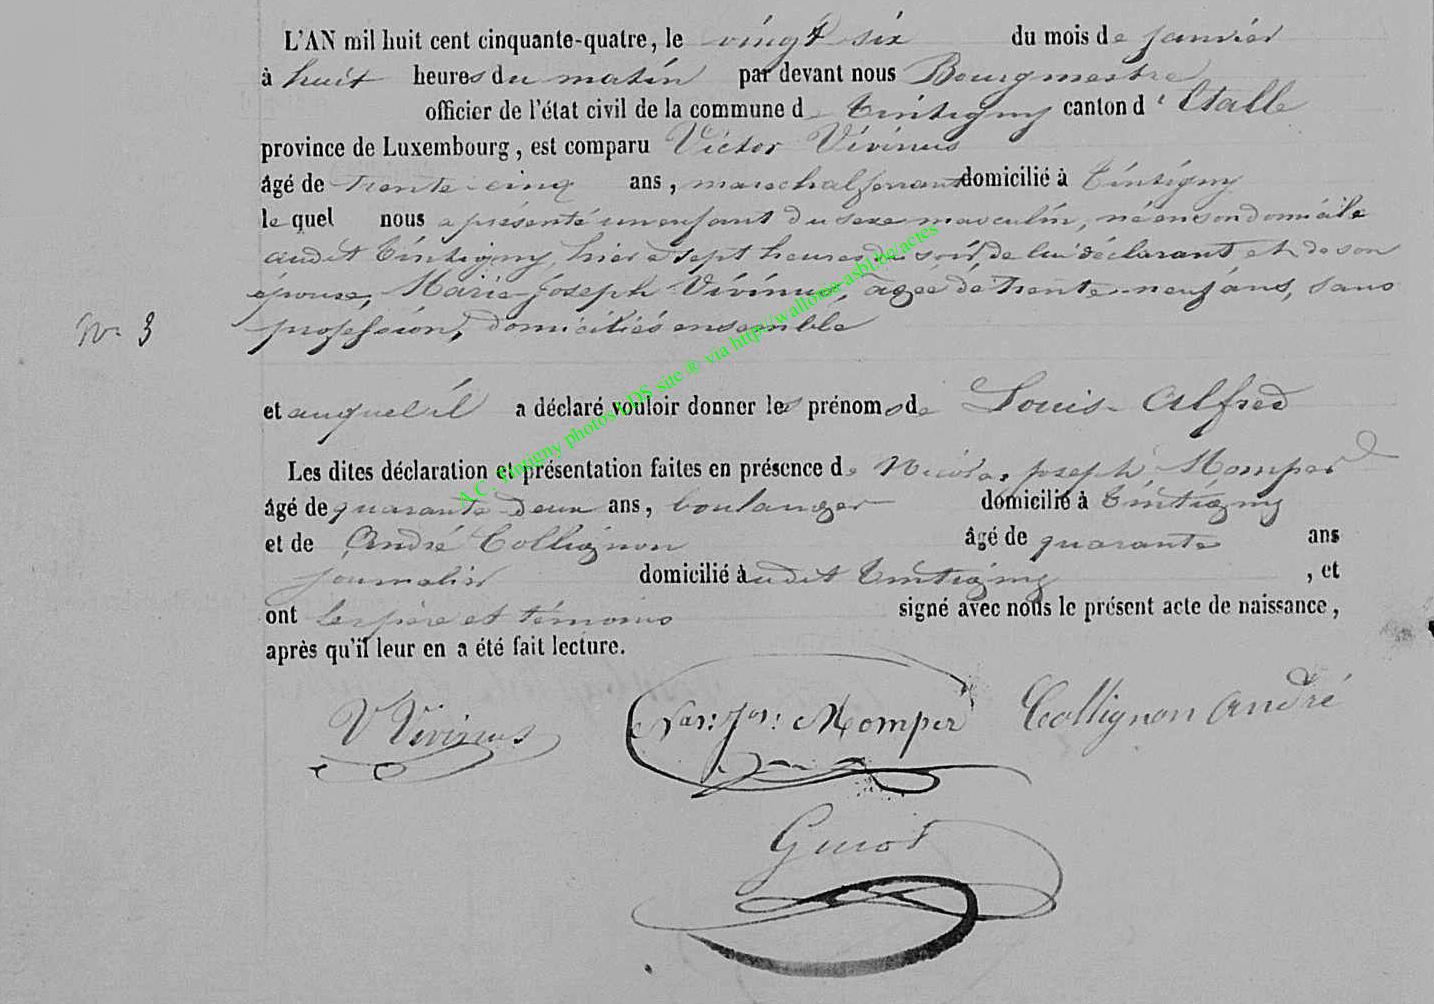 L'AN mil huit cent cinquante-quatre, le vingt six du mois de janvier
à huit heures du matin par devant nous Bourgmestre
officier de l'état civil de la commune de Tintigny canton d'Etalle
province de Luxembourg, est comparu Victor Vivinus
âgé de trente-cinq ans, marechalferrant domicilié à Tintigny
le quel nous a présenté un enfant du sexe masculin, né en son domicile
audit Tintigny, hier à sept heures du soir, de lui déclarant et de son
épouse, Marie-Joseph Vivinus, agée de trente-neuf ans, sans
N° 3 profession, domiciliés ensemble
et auquel il a déclaré vouloir donner les prénoms de Louis-Alfred
Les dites déclaration et présentation faites en présence de Nicolas Joseph Momper
âgé de quarante-deux ans, boulanger domicilié à Tintigny
et de André Collignon âgé de quarante ans
journalier domicilié audit Tintigny, et
ont les père et témoins signé avec nous le présent acte de naissance,
après qu'il leur en a été fait lecture.
V Vivinus Nas: Jos: Momper Collignon André
A.C. Tintigny photos LDS site ® via http://wallonia-asbl.be/actes